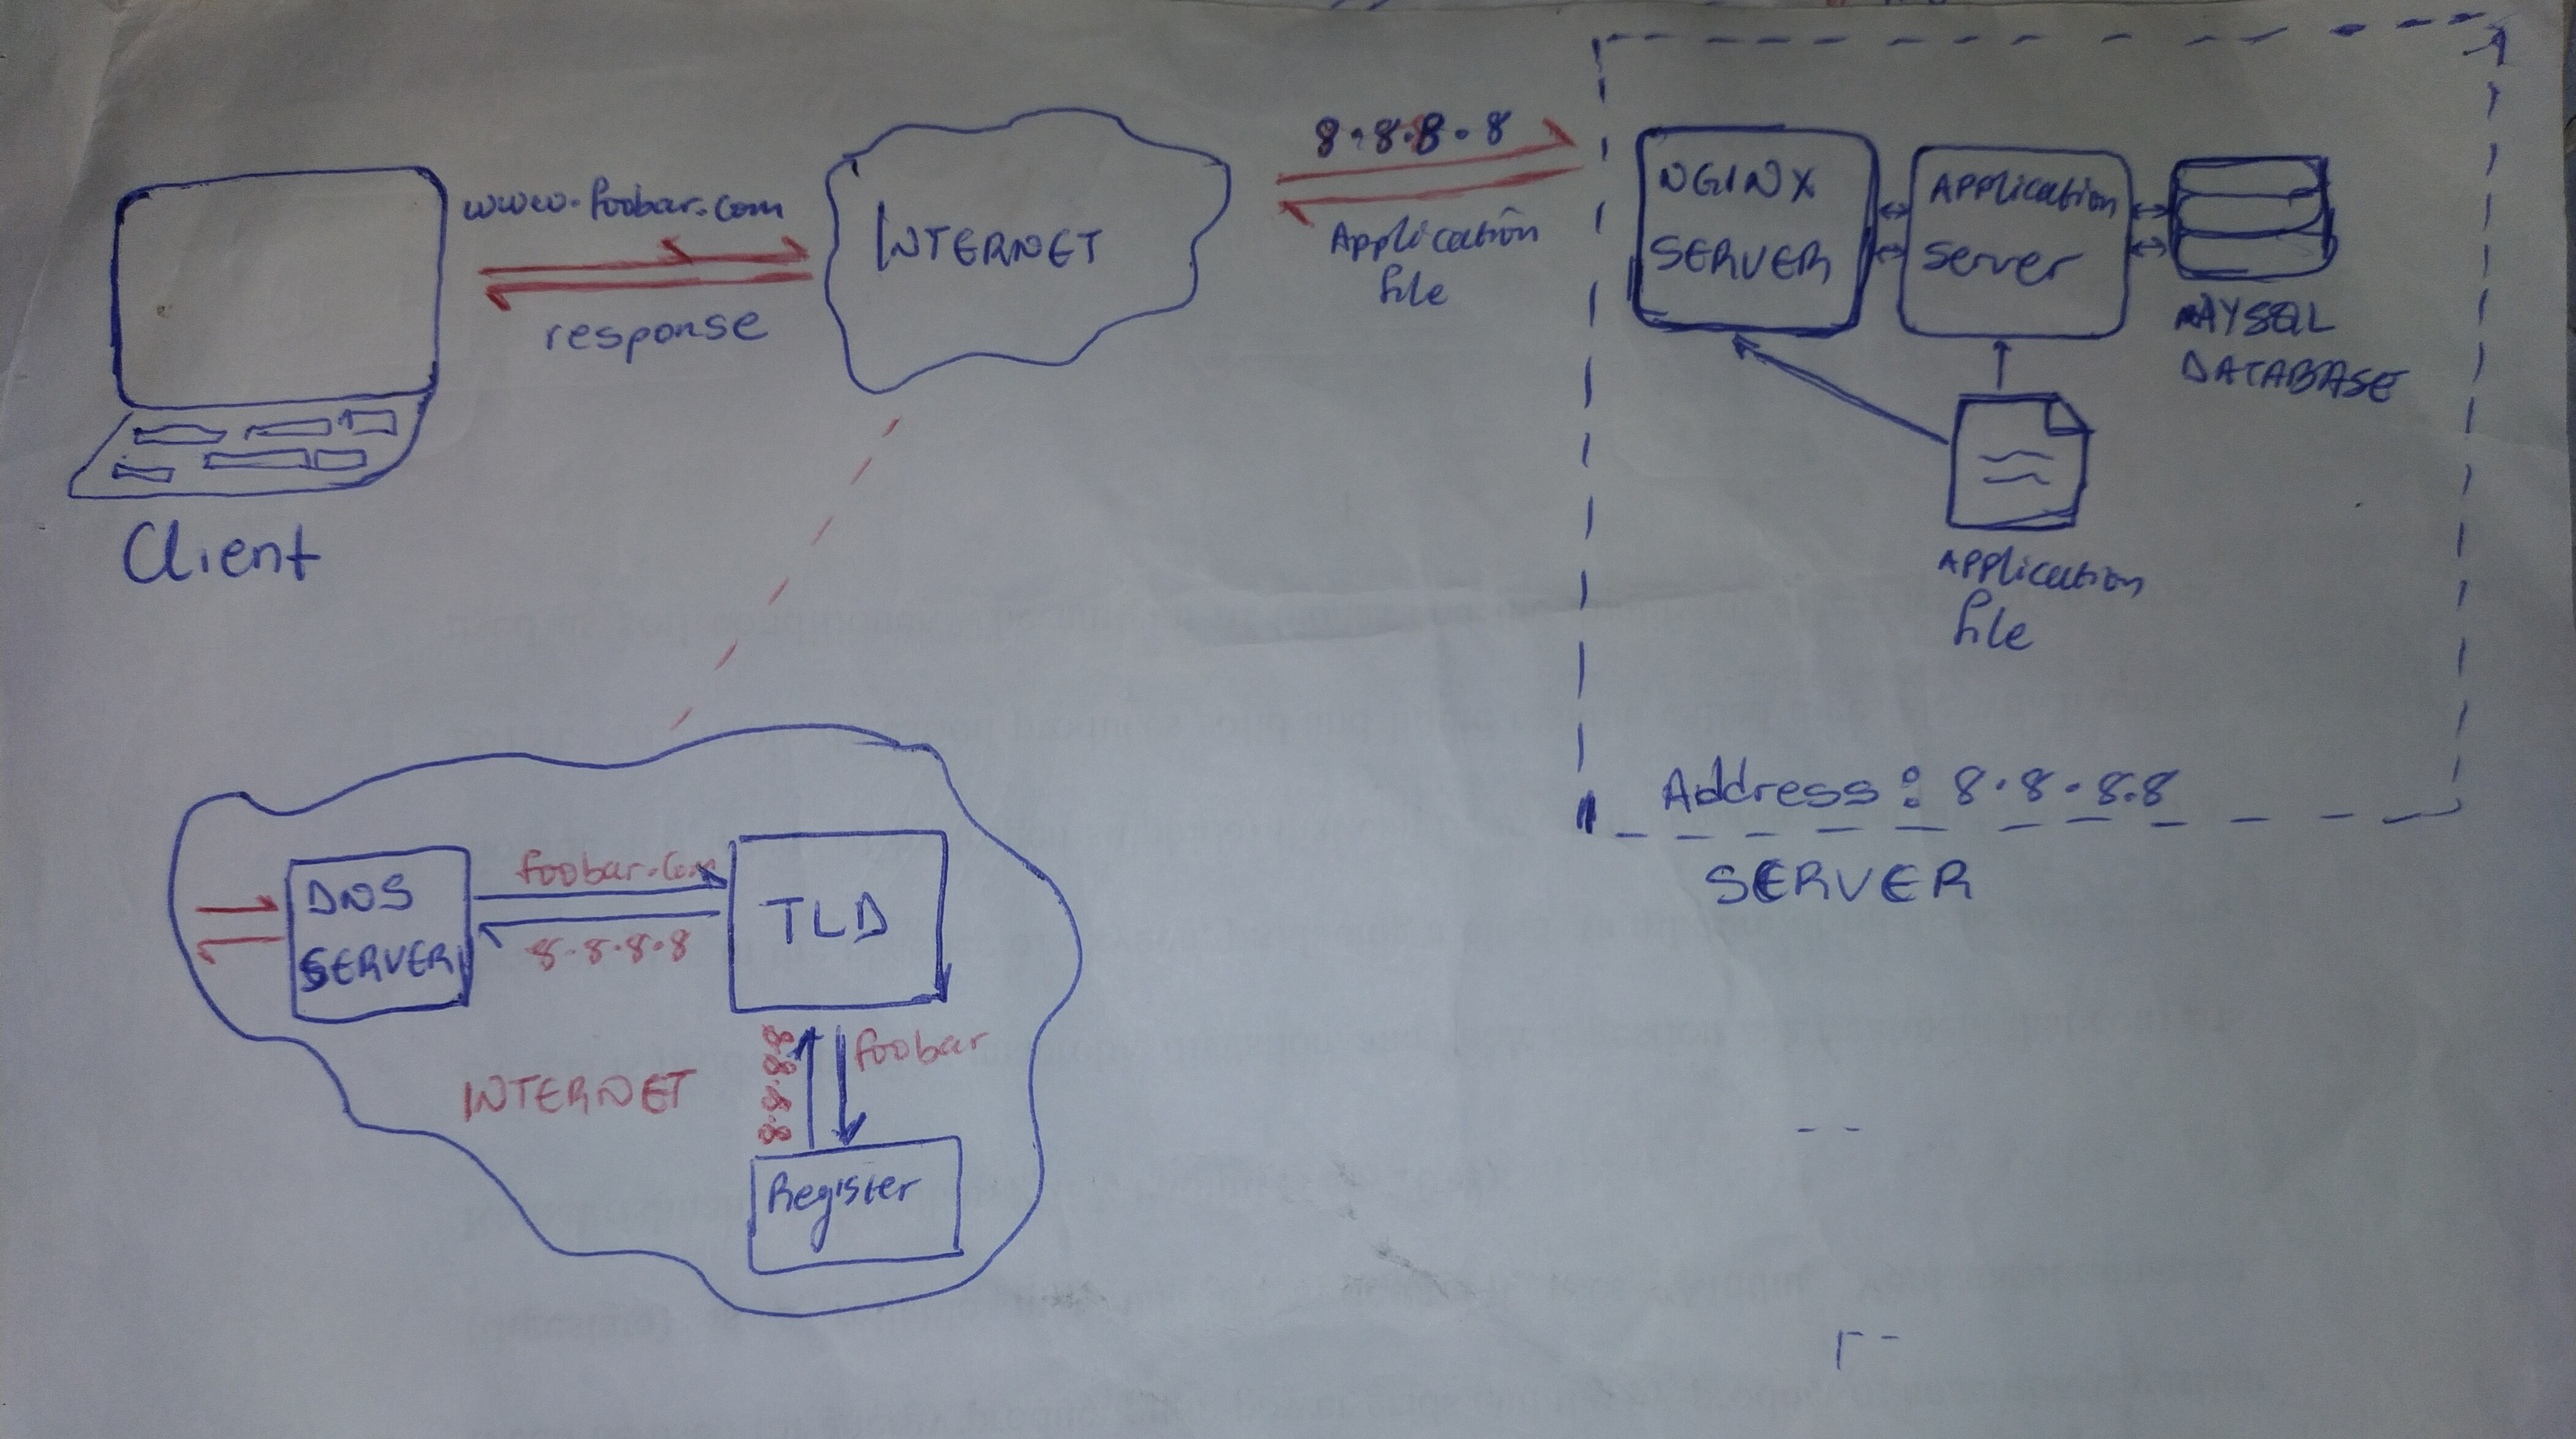 www.foobar.com
response
Client
INTERNET
8.8.8.8
Application
file
NGINX
SERVER
Application
Server
MYSQL
DATABASE
Application
file
Address: 8.8.8.8
SERVER
DNS
SERVER
foobar.com
8.8.8.8
TLD
8.8.8.8
foobar
INTERNET
Register